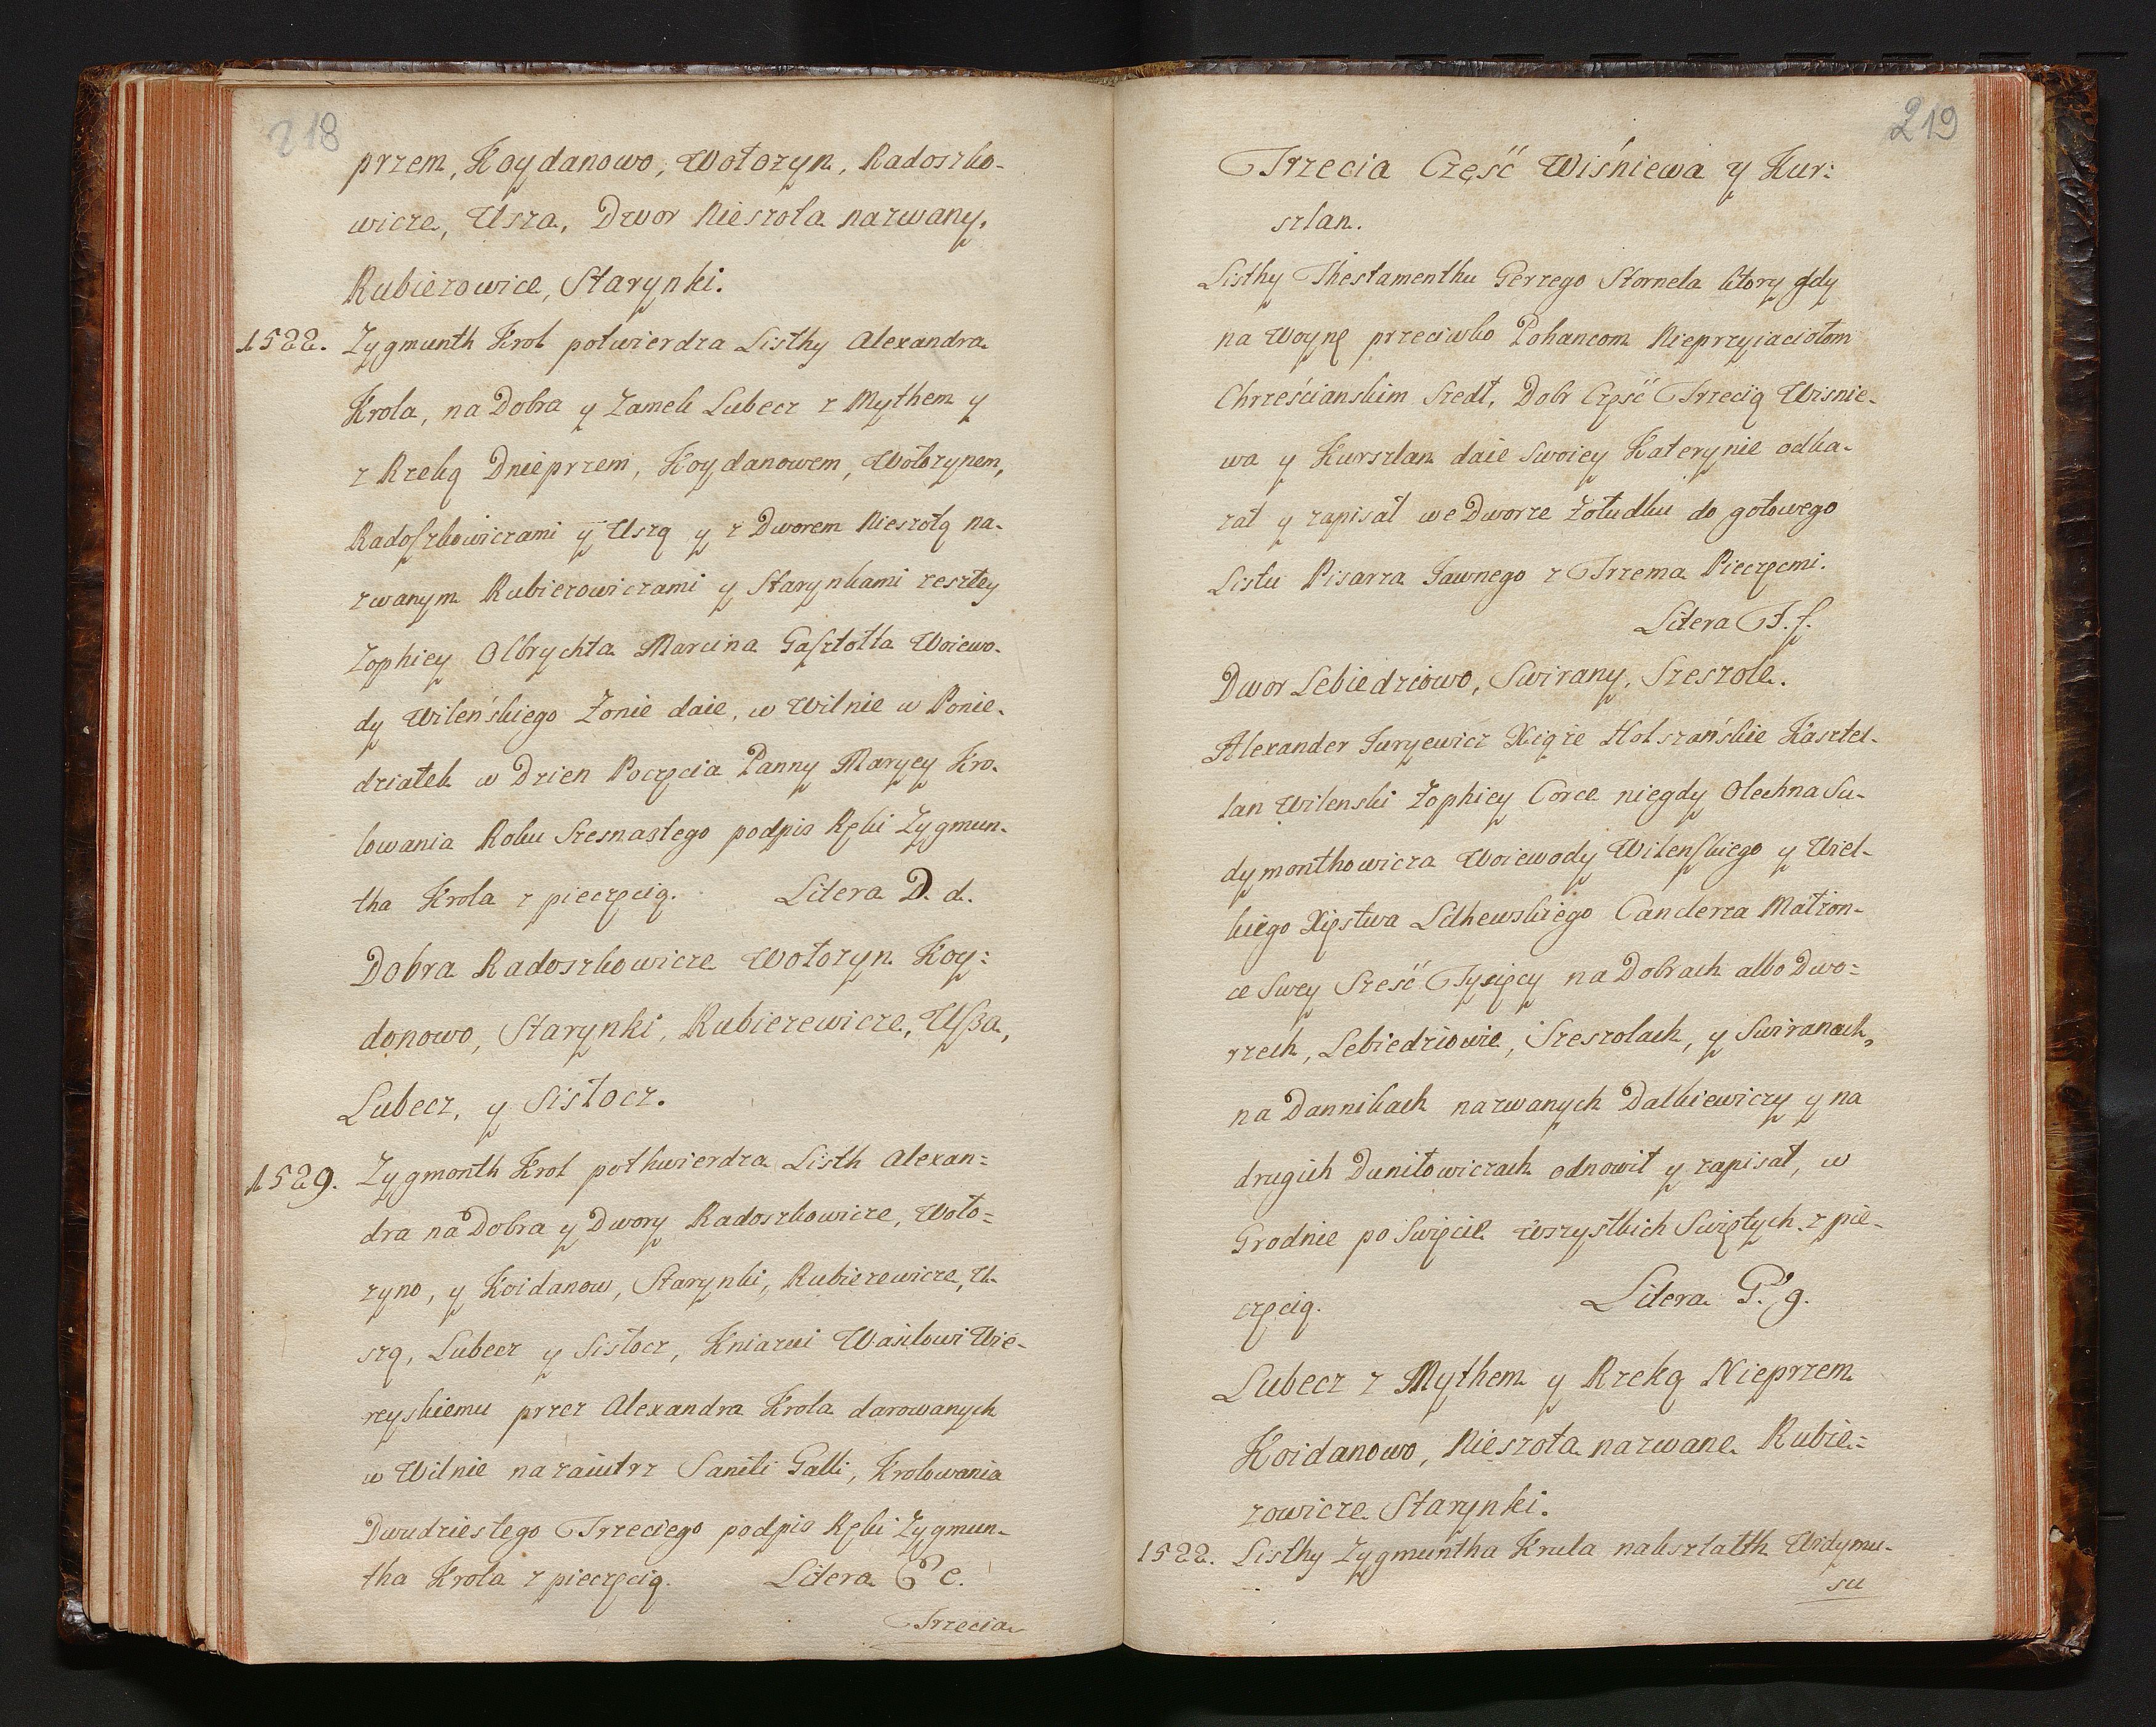 218
przem, Koydanowo, Wołozyn, Radoszko-
wicze, Usza, Dwor Nieszoła nazwany,
Rubiezowice, Starynki.
1522. Zygmunth Krol potwierdza Listhy Alexandra
Krola, na Dobra y Zamek Lubecz z Mythem y
z Rzeką Dnieprzem, Koydanowem, Wołozynem,
Radoszkowiczami y Uszą y z Dworem Nieszołą na-
zwanym Rubiezowiczami y Starynkami zeszłey
Zophiey Olbrychta Marcina Gasztołta Woiewo-
dy Wileńskiego Zonie daie, w Wilnie w Ponie-
dziatek w Dzien Poczęcia Panny Maryey Kro-
lowania Roku Szesnastego podpis Ręki Zygmun-
tha Krola z pieczęcią. Litera D. d.
Dobra Radoszkowicze Wołozyn Koy:
donowo, Starynki, Rubiezewicze, Usza,
Lubecz, y Sistocz.
1529. Zygmonth Krol pothwierdza Listh Alexan=
dra na Dobra y Dwory Radoszkowicze, Woło=
zyno, y Koidanow, Starynki, Rubiezewicze, U-
szą, Lubecz y Sistocz, Kniazui Wasilowi Wie-
reyskiemu przez Alexandra Krola darowanych
w Wilnie nazaiutrz Sancti Galli, Krolowania
Dwudziestego Trzeciego podpis Ręki Zygmun-
tha Krola z pieczęcią. Litera E e.
Trzecia
219
Trzecia Część Wiśniewa y Kur:
szlan.
Listhy Thestamenthu Gerzego Stornela ktory gdy
na Woynę przeciwko Pohancom Nieprzyiaciołom
Chrześcianskim Szedł, Dobr Część Trzecią Wisnie-
wa y Kurszlan daie Swoiey Katerynie odka-
zał y zapisał we Dworze Zołudku do gotowego
Listu Pisarza Jawnego z Trzema Pieczęcmi.
Litera F. f.
Dwor Lebiedziowo, Swirany, Szeszole.
Alexander Juryewicz Xiąże Holszańskie Kasztel-
lan Wilenski Zophiey Corce niegdy Olechna Su-
dymonthowicza Woiewody Wilenskiego y Wiel-
kiego Xięstwa Lithewskiego Canclerza Małzon-
ce Swey Sześć Tysięcy na Dobrach albo Dwo=
rzech, Lebiedziowie, Szeszolach, y Swiranach,
na Dannikach nazwanych Dalkiewiczy y na
drugich Daniłowiczach odnowił y zapisał, w
Grodnie po Swięcie Wszystkich Swiętych z pie-
częcią. Litera G. g.
Lubecz z Mythem y Rzeką Nieprzem
Koidanowo, Nieszoła nazwane Rubie=
zowicze Starynki.
1522. Listhy Zygmuntha Krula naksztalth Widymu-
su